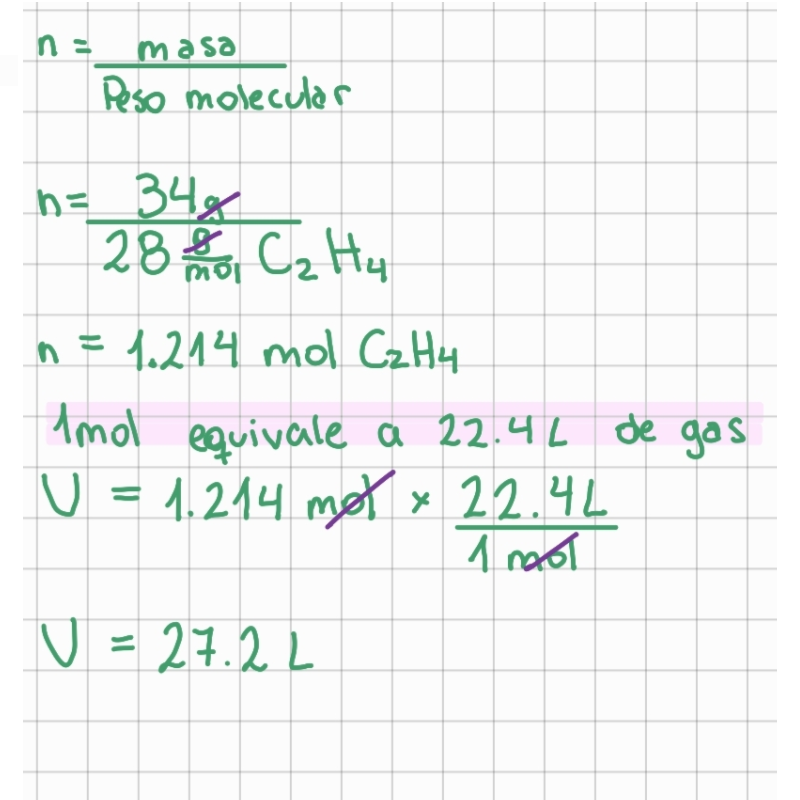 n = masa
Peso molecular
n = 34 g
28 g/mol C₂H₄
n = 1.214 mol C₂H₄
1mol equivale a 22.4 L de gas
V = 1.214 mol × 22.4 L
1 mol
V = 27.2 L